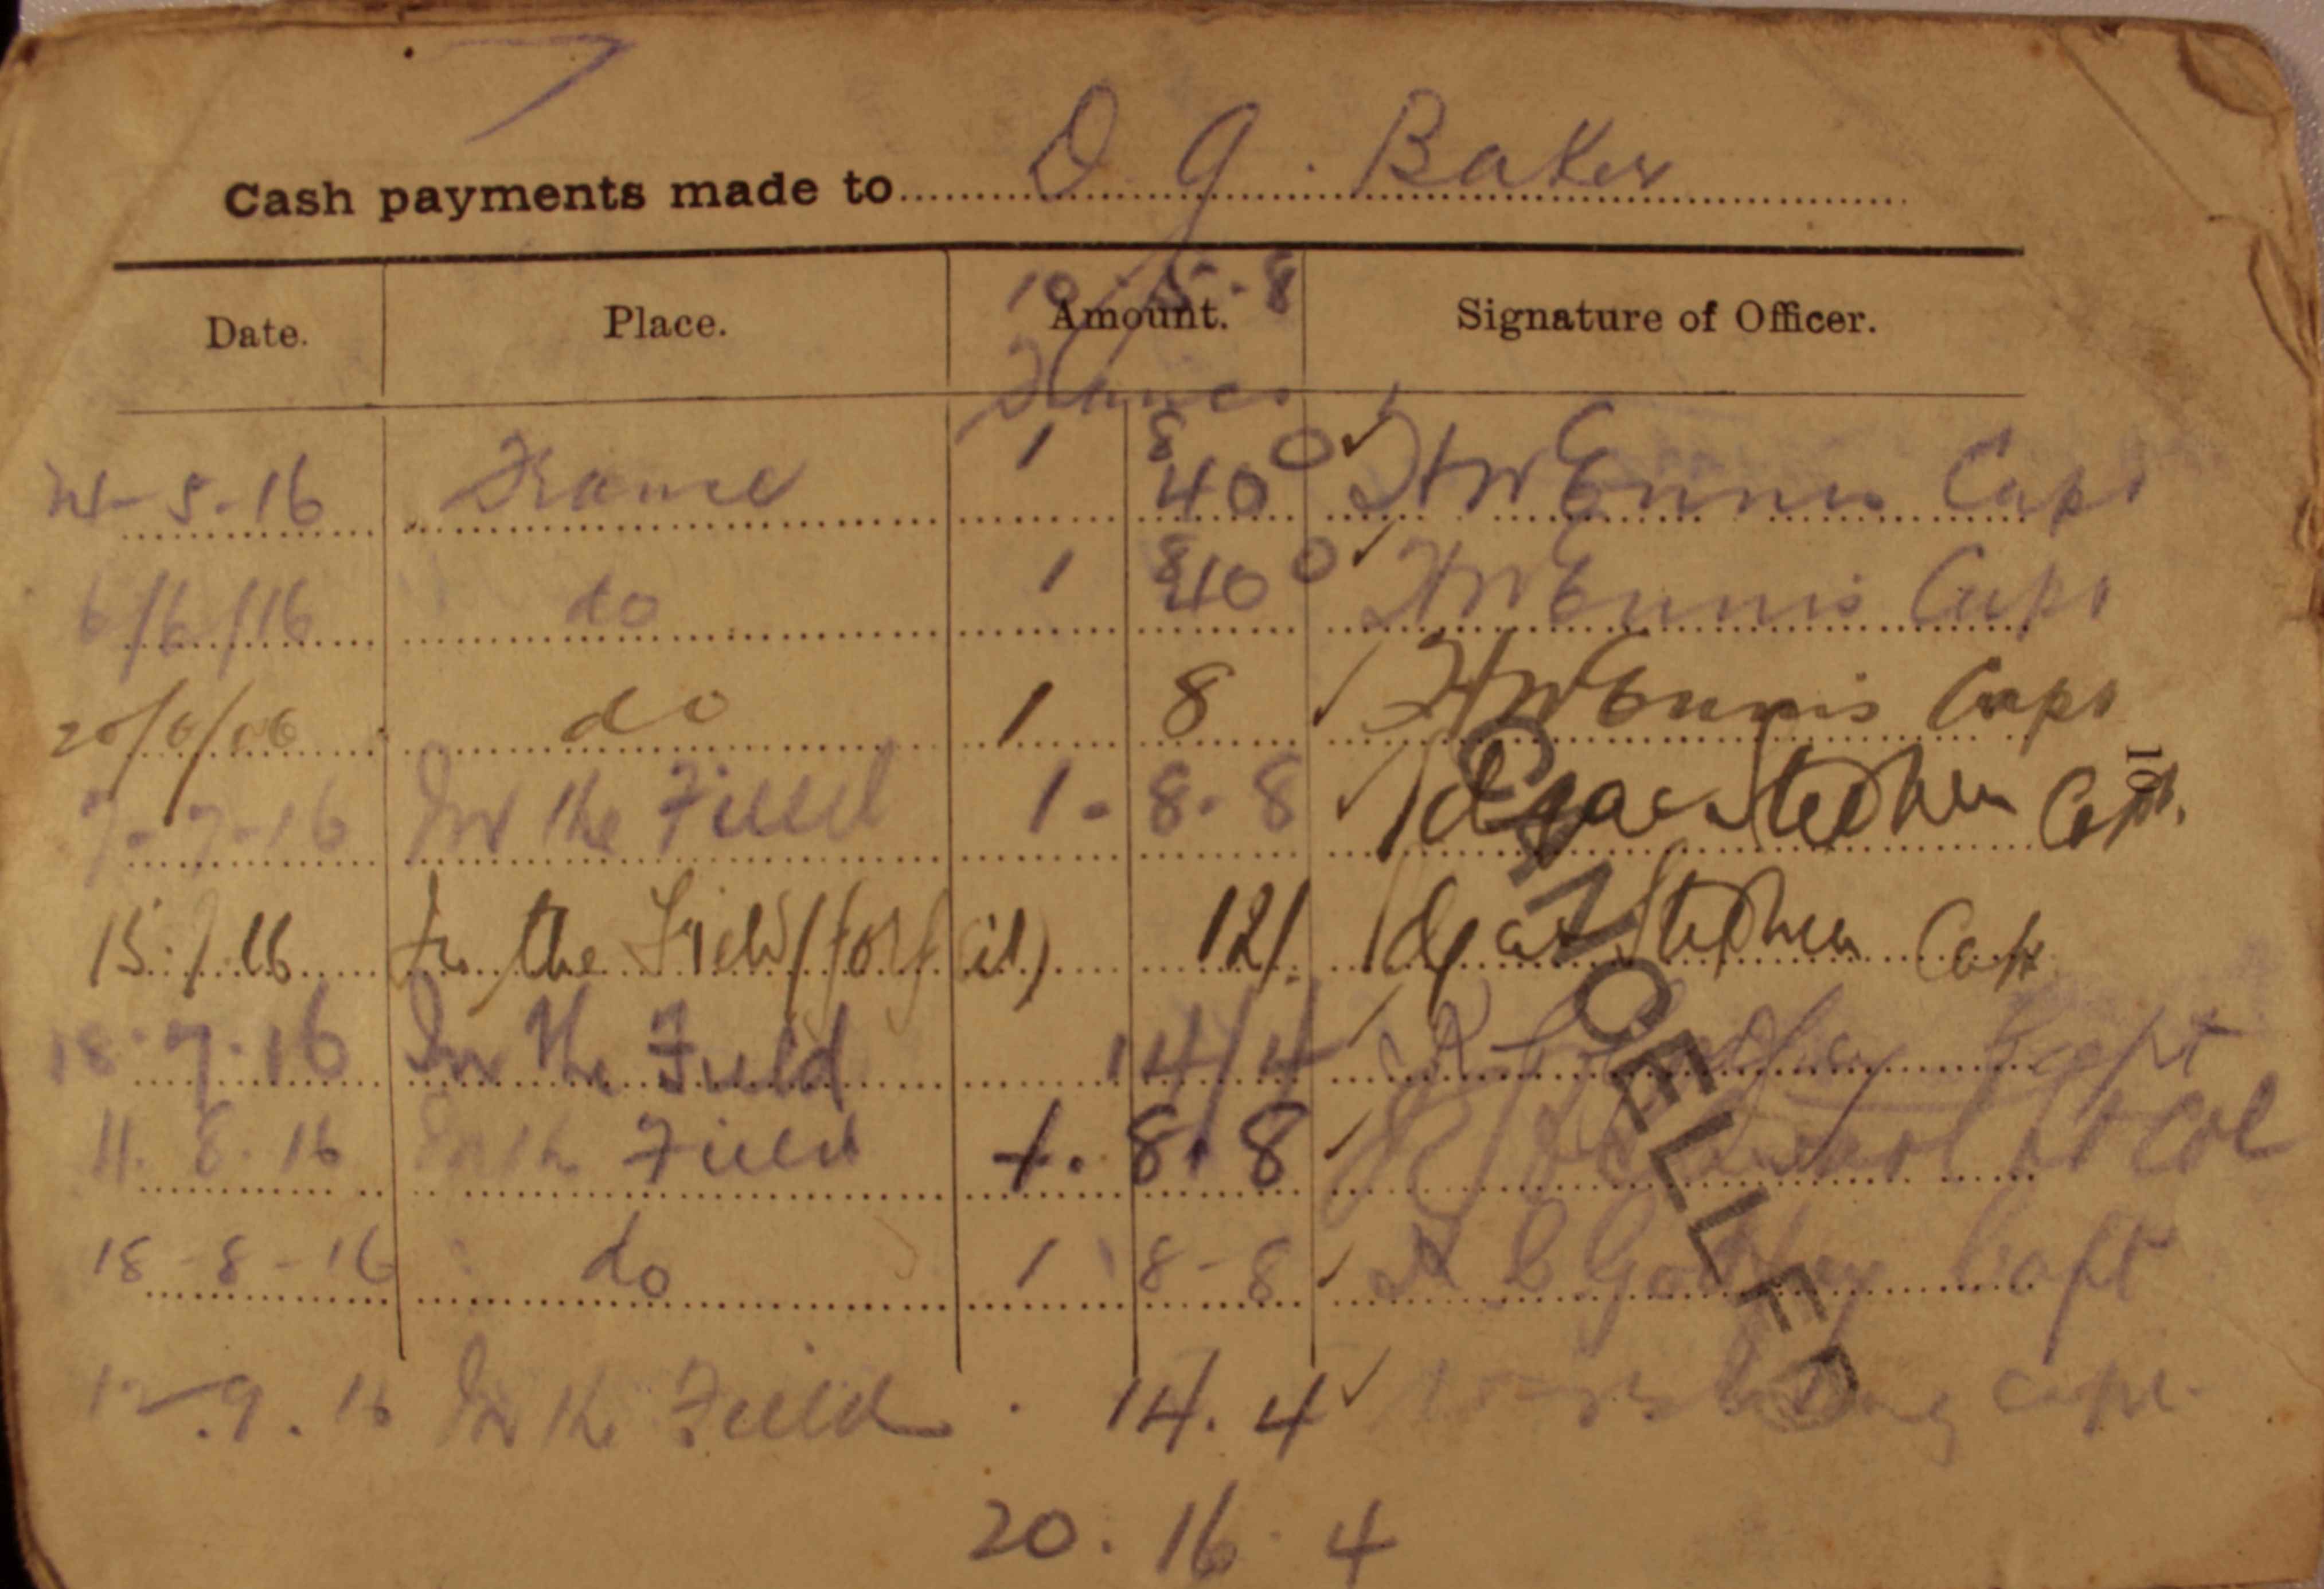 Cash payments made to D. G. Baker
10 . 5 . 8
Date. Place. Amount. Signature of Officer.
Francs
5.16 France 1 8 0 40 ✓ Ennis Capt
6/6/16 do 1 8 0 40 ✓ Ennis Capt
20/6/ do 1 8 ✓ Ennis Capt
7-7-16 In the Field 1 - 8 - 8 ✓ Stephen Capt.
10
15.7.16 In the Field (forfeit) 12/. Stephen Capt
18.7.16 In the Field 14/4 ✓ R Godfrey Capt
11.8.16 In the Field 1. 8. 8 ✓ Lt Col
18-8-16 do 1 8-8 ✓ R Godfrey Capt
.9.16 In the Field . 14.4 ✓ Capt
20. 16. 4
CANCELLED